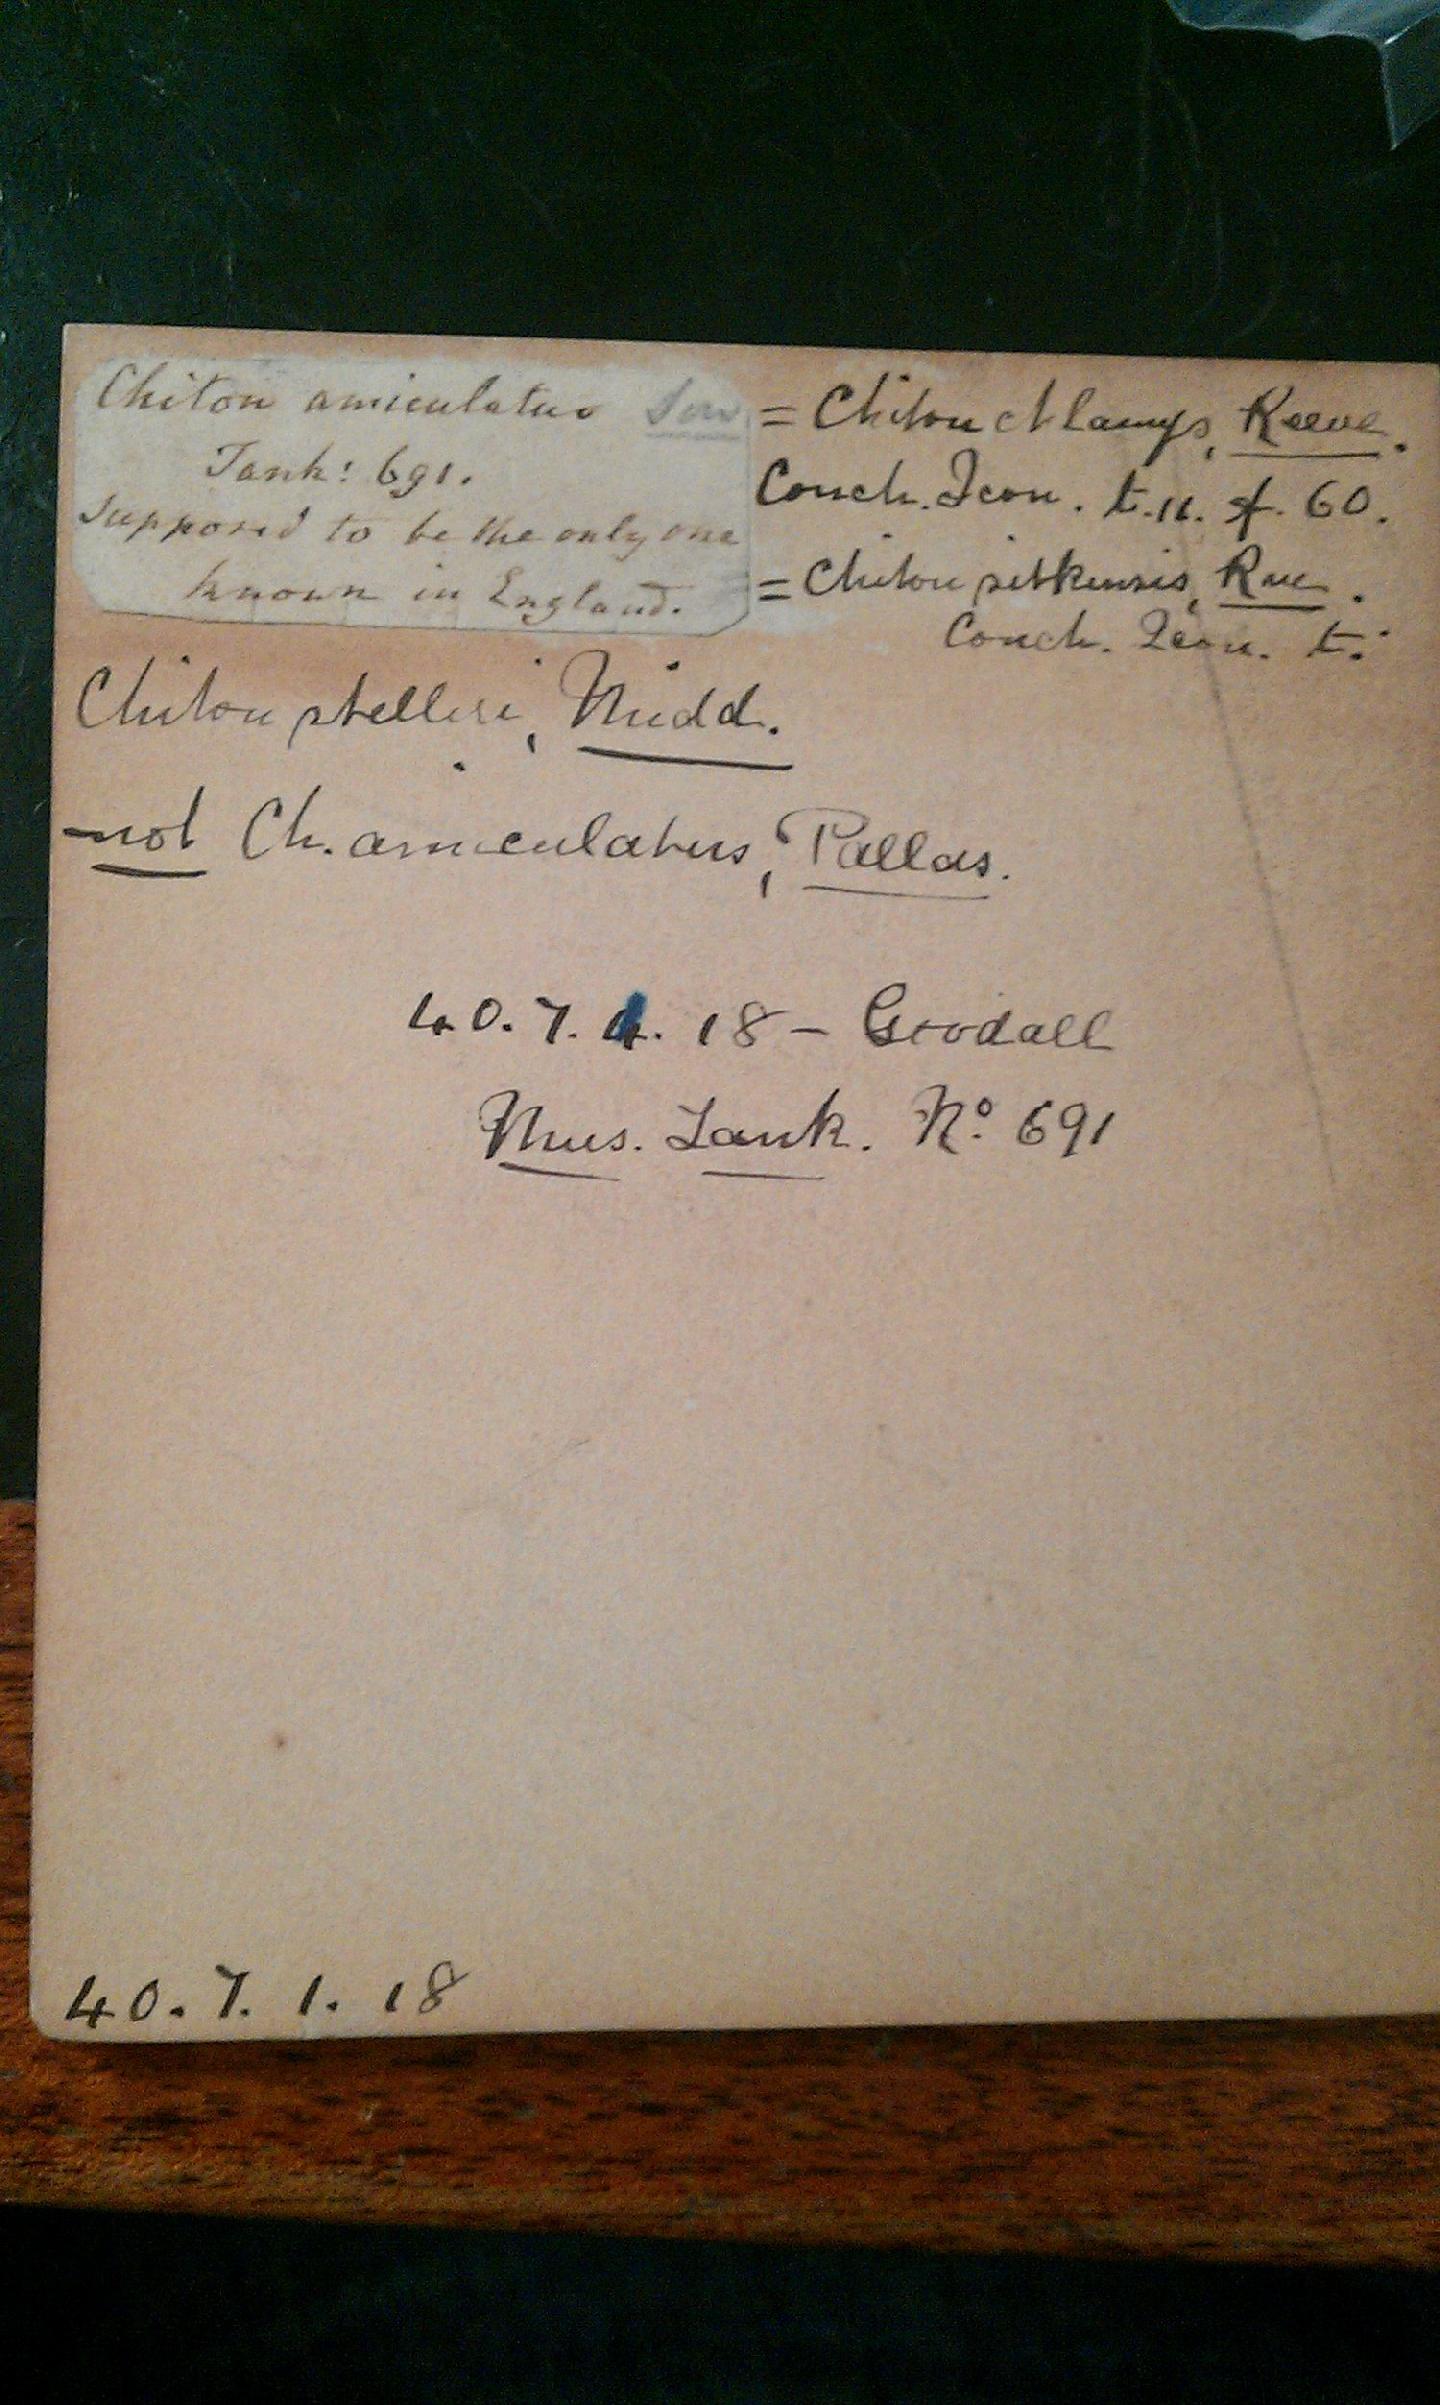 Chiton amiculatus Sow
Tank: 691.
Supposed to be the only one
known in England.
= Chiton chlamys, Reeve.
Conch. Icon. t. 11. f. 60.
= Chiton sitkensis, Rve.
Conch. Icon. t.
Chiton stelleri, Midd.
not Ch. amiculatus, Pallas.
40.7.1.18 - Goodall
Mus. Tank. No. 691
40.7.1.18